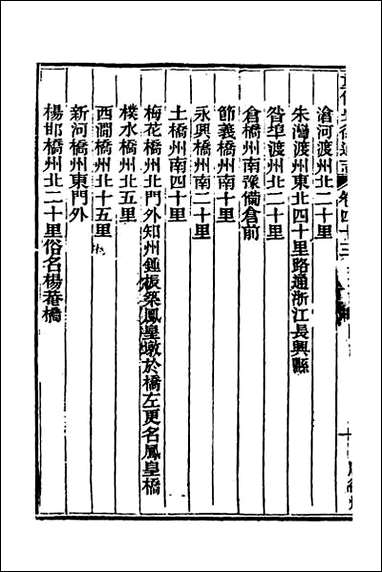 滄河渡州北二十里
朱灣渡州東北四十里路通浙江長興縣
昝䢒渡州北二十里
倉橋州南豫備倉前
節義橋州南十里
永興橋州南二十里
土橋州南四十里
梅花橋州北門外知州鍾振築鳳皇墩於橋左更名鳳皇橋
樸水橋州北五里
西澗橋州北十五里
新河橋州東門外
楊邯橋州北二十里俗名楊菴橋